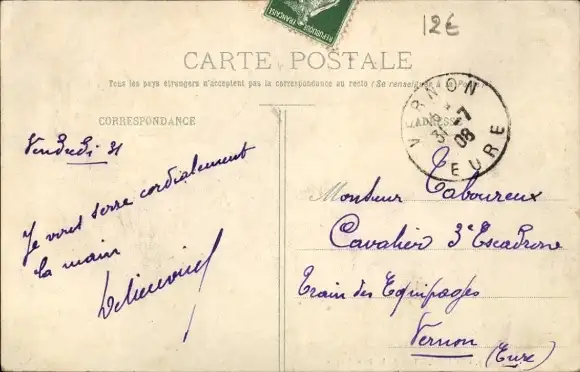 RÉPUBLIQUE FRANÇAISE
12€
CARTE POSTALE
Tous les pays étrangers n'acceptent pas la correspondance au recto (Se renseigner à la Poste)
CORRESPONDANCE
ADRESSE
VERNON
31 -7
08
EURE
Vendredi 31
Je vous serre cordialement
la main
Monsieur Taboureux
Cavalier 3e Escadron
Train des Equipages
Vernon
(Eure)